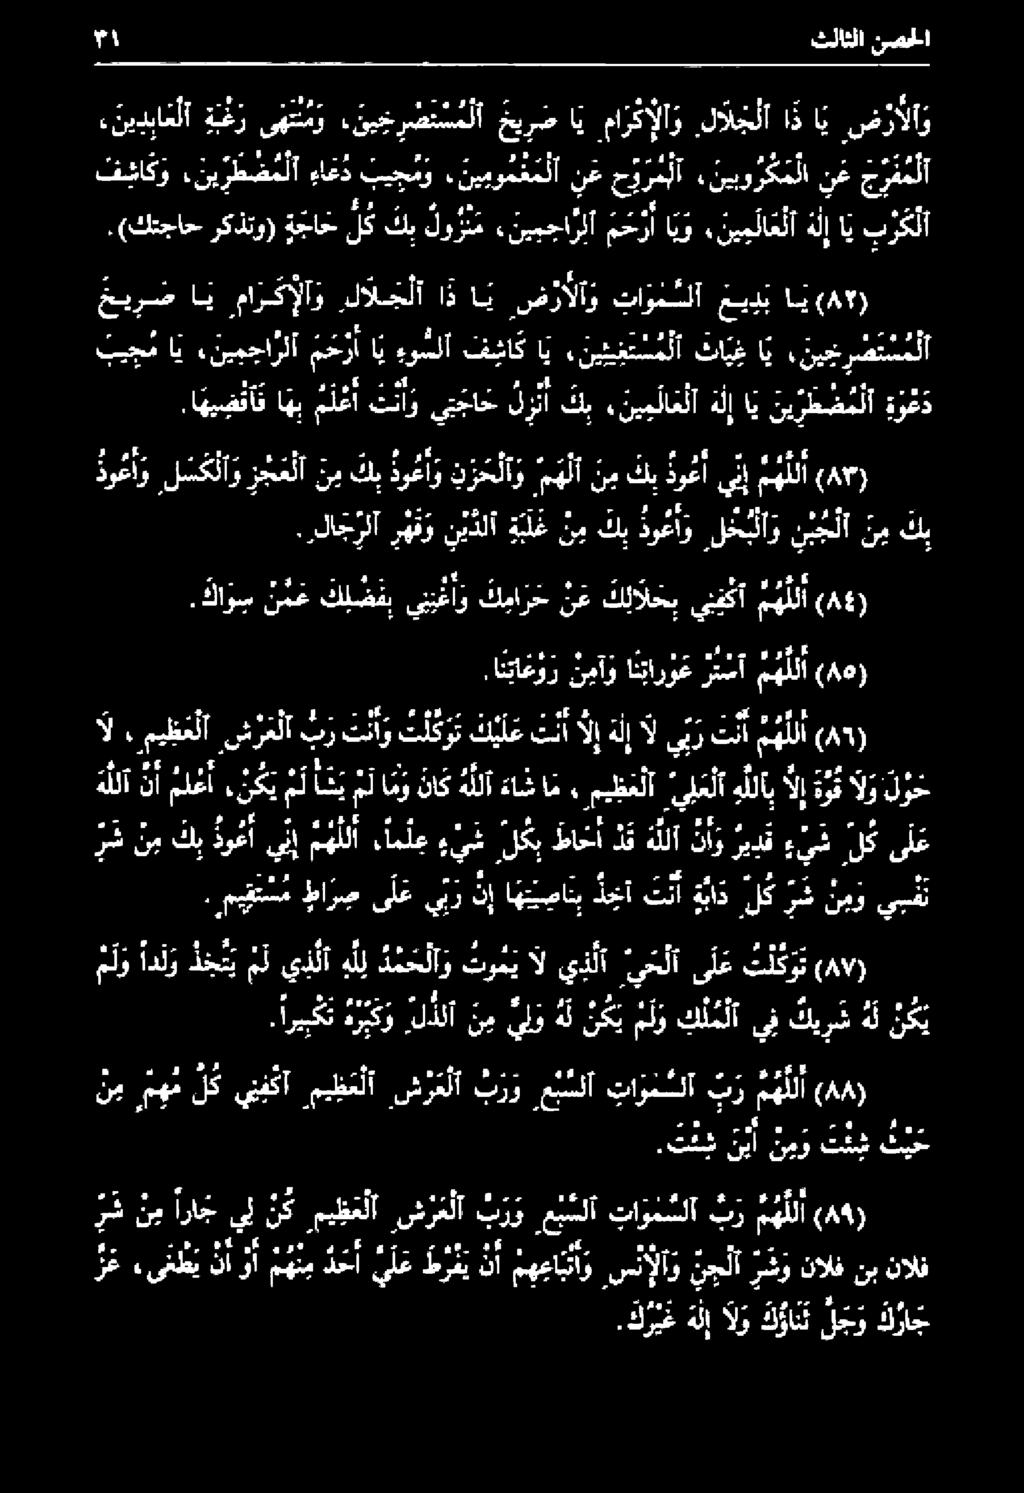 الحصن الثالث ٣١
وَٱلْأَرْضِ يَا ذَا ٱلْجَلَالِ وَٱلْإِكْرَامِ يَا صَرِيخَ ٱلْمُسْتَصْرِخِينَ، وَمُنْتَهَى رَغْبَةِ ٱلْعَابِدِينَ،
ٱلْمُفَرِّجُ عَنِ ٱلْمَكْرُوبِينَ، ٱلْمُرَوِّحُ عَنِ ٱلْمَغْمُومِينَ، وَمُجِيبَ دُعَاءِ ٱلْمُضْطَرِّينَ، وَكَاشِفَ
ٱلْكَرْبِ يَا إِلٰهَ ٱلْعَالَمِينَ، وَيَا أَرْحَمَ ٱلرَّاحِمِينَ، مَنْزُولٌ بِكَ كُلُّ حَاجَةٍ (وتذكر حاجتك).
(٨٢) يَا بَدِيعَ ٱلسَّمٰوَاتِ وَٱلْأَرْضِ يَا ذَا ٱلْجَلَالِ وَٱلْإِكْرَامِ يَا صَرِيخَ
ٱلْمُسْتَصْرِخِينَ، يَا غِيَاثَ ٱلْمُسْتَغِيثِينَ، يَا كَاشِفَ ٱلسُّوءِ يَا أَرْحَمَ ٱلرَّاحِمِينَ، يَا مُجِيبَ
دَعْوَةِ ٱلْمُضْطَرِّينَ يَا إِلٰهَ ٱلْعَالَمِينَ، بِكَ أُنْزِلُ حَاجَتِي وَأَنْتَ أَعْلَمُ بِهَا فَٱقْضِيهَا.
(٨٣) أَللَّهُمَّ إِنِّي أَعُوذُ بِكَ مِنَ ٱلْهَمِّ وَٱلْحَزَنِ وَأَعُوذُ بِكَ مِنَ ٱلْعَجْزِ وَٱلْكَسَلِ وَأَعُوذُ
بِكَ مِنَ ٱلْجُبْنِ وَٱلْبُخْلِ وَأَعُوذُ بِكَ مِنْ غَلَبَةِ ٱلدَّيْنِ وَقَهْرِ ٱلرِّجَالِ.
(٨٤) أَللَّهُمَّ ٱكْفِنِي بِحَلَالِكَ عَنْ حَرَامِكَ وَأَغْنِنِي بِفَضْلِكَ عَمَّنْ سِوَاكَ.
(٨٥) أَللَّهُمَّ ٱسْتُرْ عَوْرَاتِنَا وَآمِنْ رَوْعَاتِنَا.
(٨٦) أَللَّهُمَّ أَنْتَ رَبِّي لَا إِلٰهَ إِلَّا أَنْتَ عَلَيْكَ تَوَكَّلْتُ وَأَنْتَ رَبُّ ٱلْعَرْشِ ٱلْعَظِيمِ، لَا
حَوْلَ وَلَا قُوَّةَ إِلَّا بِٱللَّهِ ٱلْعَلِيِّ ٱلْعَظِيمِ، مَا شَاءَ ٱللَّهُ كَانَ وَمَا لَمْ يَشَأْ لَمْ يَكُنْ، أَعْلَمُ أَنَّ ٱللَّهَ
عَلَى كُلِّ شَيْءٍ قَدِيرٌ وَأَنَّ ٱللَّهَ قَدْ أَحَاطَ بِكُلِّ شَيْءٍ عِلْماً، أَللَّهُمَّ إِنِّي أَعُوذُ بِكَ مِنْ شَرِّ
نَفْسِي وَمِنْ شَرِّ كُلِّ دَابَّةٍ أَنْتَ آخِذٌ بِنَاصِيَتِهَا إِنَّ رَبِّي عَلَى صِرَاطٍ مُسْتَقِيمٍ.
(٨٧) تَوَكَّلْتُ عَلَى ٱلْحَيِّ ٱلَّذِي لَا يَمُوتُ وَٱلْحَمْدُ لِلَّهِ ٱلَّذِي لَمْ يَتَّخِذْ وَلَداً وَلَمْ
يَكُنْ لَهُ شَرِيكٌ فِي ٱلْمُلْكِ وَلَمْ يَكُنْ لَهُ وَلِيٌّ مِنَ ٱلذُّلِّ وَكَبِّرْهُ تَكْبِيراً.
(٨٨) أَللَّهُمَّ رَبَّ ٱلسَّمٰوَاتِ ٱلسَّبْعِ وَرَبَّ ٱلْعَرْشِ ٱلْعَظِيمِ ٱكْفِنِي كُلَّ مُهِمٍّ مِنْ
حَيْثُ شِئْتَ وَمِنْ أَيْنَ شِئْتَ.
(٨٩) أَللَّهُمَّ رَبَّ ٱلسَّمٰوَاتِ ٱلسَّبْعِ وَرَبَّ ٱلْعَرْشِ ٱلْعَظِيمِ كُنْ لِي جَاراً مِنْ شَرِّ
فلان بن فلان وَشَرِّ ٱلْجِنِّ وَٱلْإِنْسِ وَأَتْبَاعِهِمْ أَنْ يَفْرُطَ عَلَيَّ أَحَدٌ مِنْهُمْ أَوْ أَنْ يَطْغَى، عَزَّ
جَارُكَ وَجَلَّ ثَنَاؤُكَ وَلَا إِلٰهَ غَيْرُكَ.